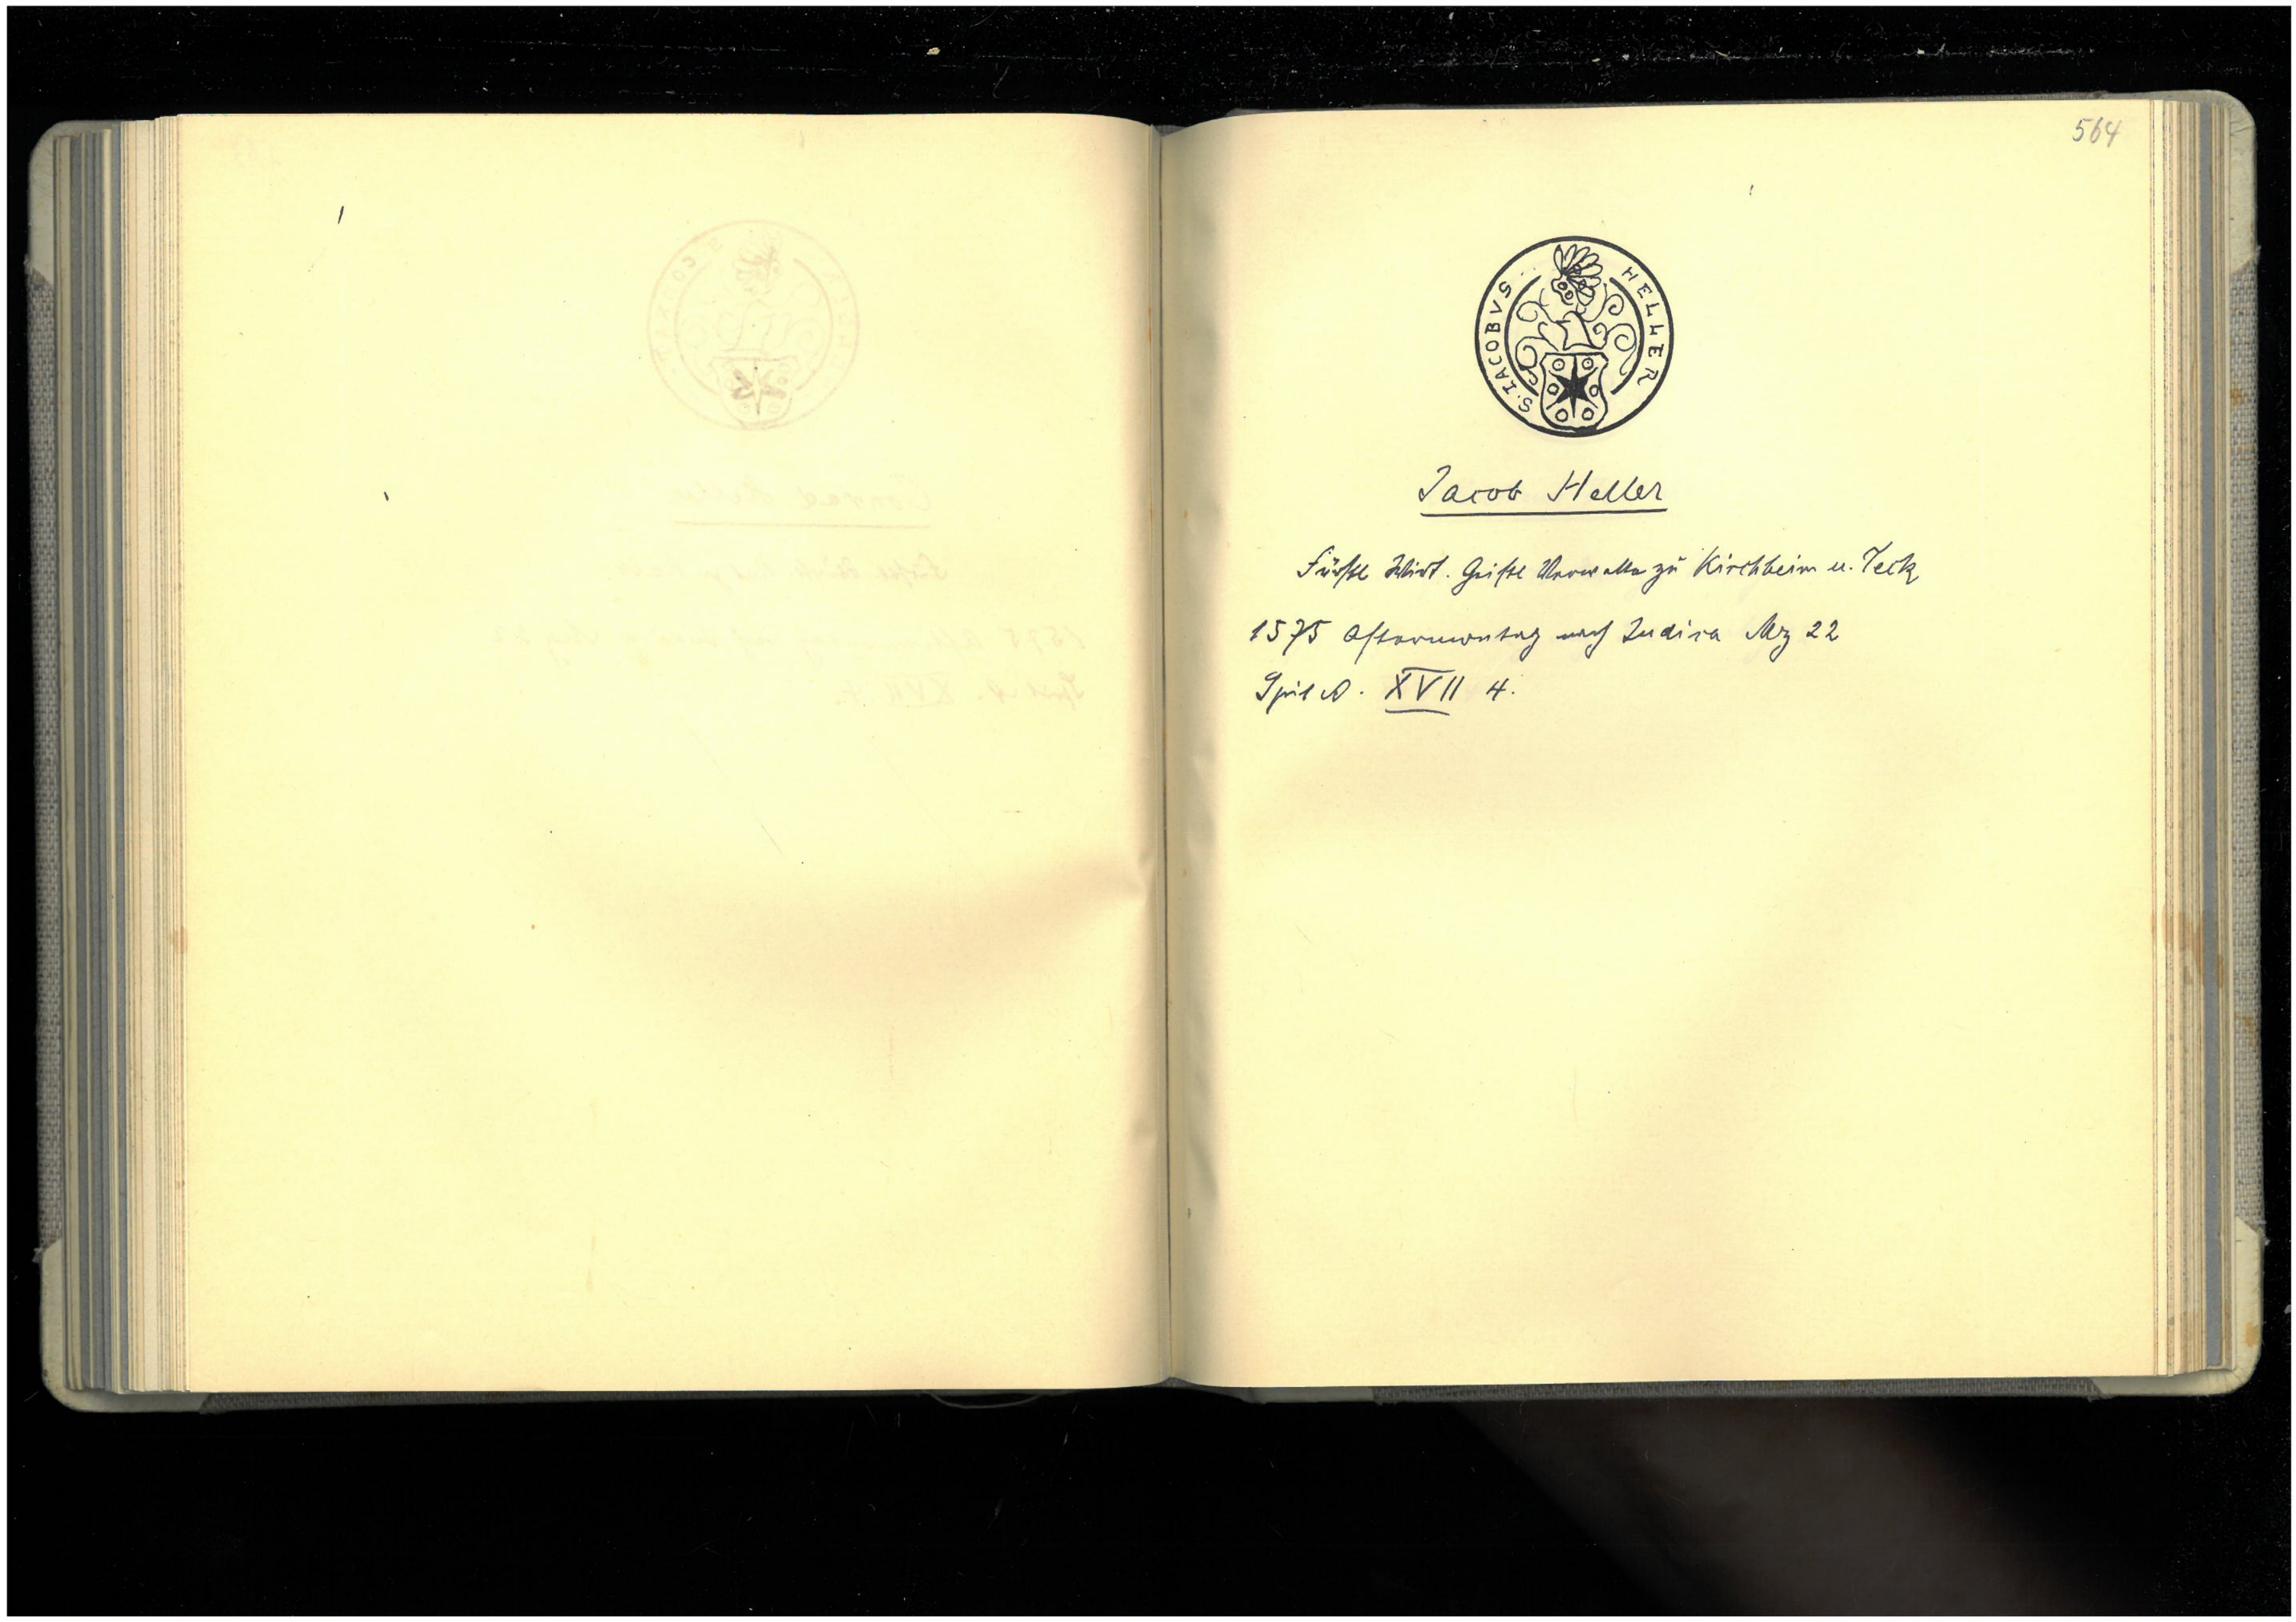 564
S. IACOBVS HELLER
Jacob Heller
Fürstl Wirt. Geistl Verwalter zu Kirchheim u. Teck
1575 Aftermontag nach Judica Mrz 22
Spit A. XVII 4.